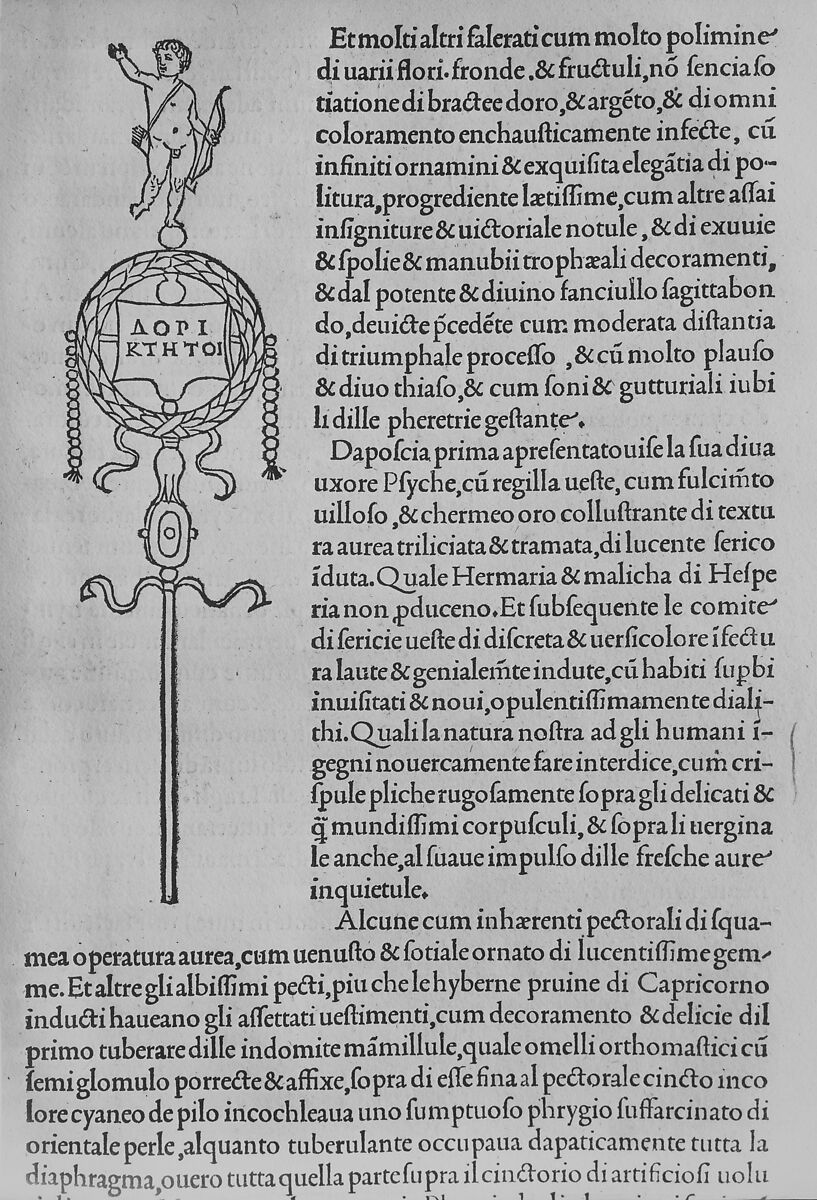 ΔΟΡΙ
ΚΤΗΤΟΙ
Et molti altri falerati cum molto polimine
di uarii flori. fronde, & fructuli, nõ ſencia ſo
tiatione di bractee doro, & argẽto, & di omni
coloramento enchauſticamente infecte, cũ
infiniti ornamini & exquiſita elegãtia di po-
litura, progrediente lætiſſime, cum altre aſſai
inſigniture & uictoriale notule, & di exuuie
& ſpolie & manubii trophæali decoramenti,
& dal potente & diuino fanciullo ſagittabon
do, deuicte p̄cedẽte cum moderata diſtantia
di triumphale proceſſo, & cũ molto plauſo
& diuo thiaſo, & cum ſoni & gutturiali iubi
li dille pheretrie geſtante.
Dapoſcia prima apreſentato uiſe la ſua diua
uxore Pſyche, cũ regilla ueſte, cum fulcim̃to
uilloſo, & chermeo oro colluſtrante di textu
ra aurea triliciata & tramata, di lucente ſerico
ĩduta. Quale Hermaria & malicha di Heſpe
ria non ꝓduceno. Et ſubſequente le comite
di ſericie ueſte di diſcreta & uerſicolore ĩfectu
ra laute & genialem̃te indute, cũ habiti ſuꝑbi
inuiſitati & noui, opulentiſſimamente diali-
thi. Quali la natura noſtra ad gli humani ĩ-
gegni nouercamente fare interdice, cum cri-
ſpule pliche rugoſamente ſopra gli delicati &
q̃ mundiſſimi corpuſculi, & ſopra li uergina
le anche, al ſuaue impulſo dille freſche aure
inquietule.
Alcune cum inhærenti pectorali di ſqua-
mea operatura aurea, cum uenuſto & ſotiale ornato di lucentiſſime gem-
me. Et altre gli albiſſimi pecti, piu che le hyberne pruine di Capricorno
inducti haueano gli aſſettati ueſtimenti, cum decoramento & delicie dil
primo tuberare dille indomite mãmillule, quale omelli orthomaſtici cũ
ſemiglomulo porrecte & affixe, ſopra di eſſe fina al pectorale cincto inco
lore cyaneo de pilo incochleaua uno ſumptuoſo phrygio ſuffarcinato di
orientale perle, alquanto tuberulante occupaua dapaticamente tutta la
diaphragma, ouero tutta quella parte ſupra il cinctorio di artificioſi uolu